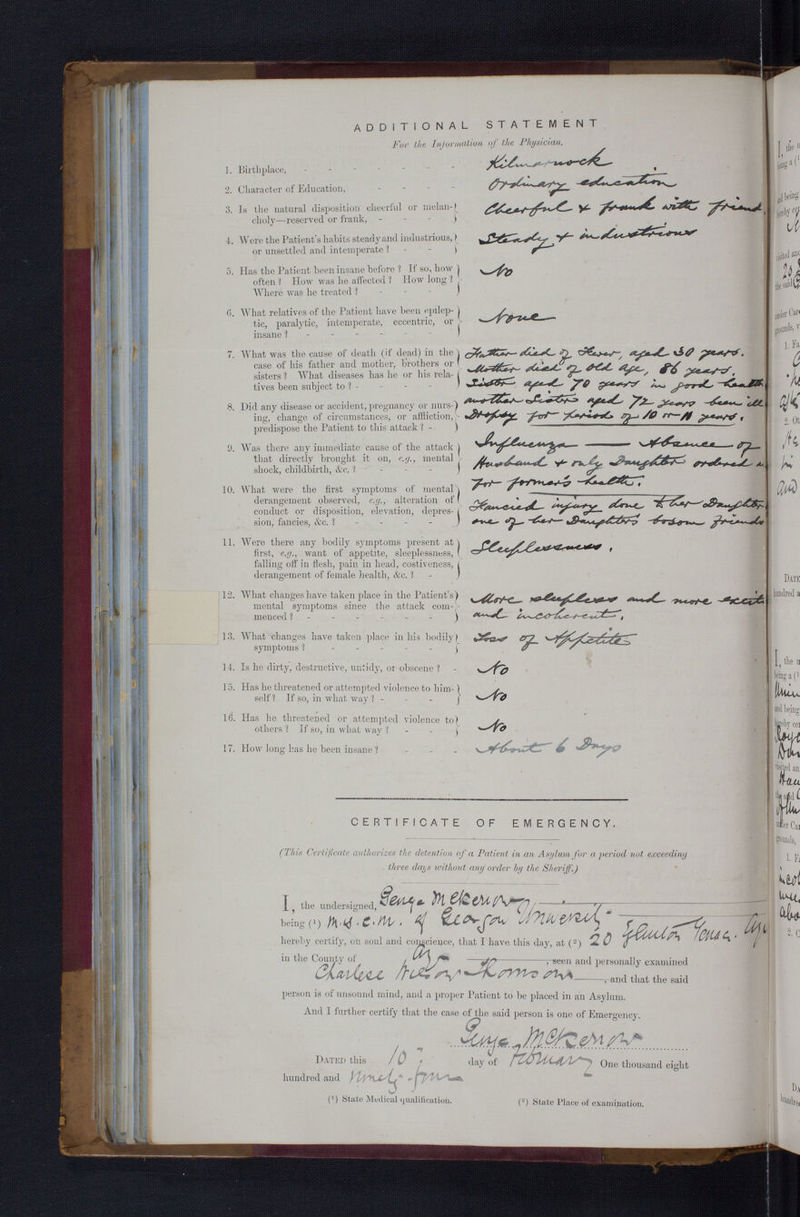 ADDITIONAL STATEMENT
For the Information of the Physician.
1. Birthplace, - - - - - - Kilmarnock
2. Character of Education, - - - - Ordinary education
3. Is the natural disposition cheerful or melan- Cheerful & frank with friends
choly—reserved or frank, - - - -
4. Were the Patient's habits steady and industrious, Steady & industrious
or unsettled and intemperate? - - -
5. Has the Patient been insane before? If so, how No
often? How was he affected? How long?
Where was he treated? - - -
6. What relatives of the Patient have been epilep- None
tic, paralytic, intemperate, eccentric, or
insane? - - - - - -
7. What was the cause of death (if dead) in the Father died of Fever, aged 30 years.
case of his father and mother, brothers or Mother died of old age, 86 years.
sisters? What diseases has he or his rela- Sister aged 70 years in good health
tives been subject to? - another Sister aged 72 years been ill
8. Did any disease or accident, pregnancy or nurs- Dropsy for period of 10 or 11 years.
ing, change of circumstances, or affliction,
predispose the Patient to this attack? -
9. Was there any immediate cause of the attack Influenza — Absence of
that directly brought it on, e.g., mental Husband & only Daughter ordered
shock, childbirth, &c.? - - - for former's health.
10. What were the first symptoms of mental
derangement observed, e.g., alteration of Fancied injury done to her Daughter
conduct or disposition, elevation, depres- one of her Daughters bosom friends
sion, fancies, &c.? - - - -
11. Were there any bodily symptoms present at Sleeplessness.
first, e.g., want of appetite, sleeplessness,
falling off in flesh, pain in head, costiveness,
derangement of female health, &c.? -
12. What changes have taken place in the Patient's More sleepless and more excited
mental symptoms since the attack com- and incoherent,
menced? - - - - - -
13. What changes have taken place in his bodily Loss of Appetite
symptoms? - - - - -
14. Is he dirty, destructive, untidy, or obscene? - No
15. Has he threatened or attempted violence to him- No
self? If so, in what way? - - -
16. Has he threatened or attempted violence to No
others? If so, in what way? - -
17. How long has he been insane? - - - About 6 Days
CERTIFICATE OF EMERGENCY.
(This Certificate authorizes the detention of a Patient in an Asylum for a period not exceeding
three days without any order by the Sheriff.)
I, the undersigned, George McKerrow
being (¹) M.B. C.M. of Glasgow University
hereby certify, on soul and conscience, that I have this day, at (²) 20 Terrace. Ayr
in the County of Ayr, seen and personally examined
Wilson Thomson, and that the said
person is of unsound mind, and a proper Patient to be placed in an Asylum.
And I further certify that the case of the said person is one of Emergency.
George McKerrow
DATED this 10 day of February One thousand eight
hundred and ninety-four
(¹) State Medical qualification. (²) State Place of examination.